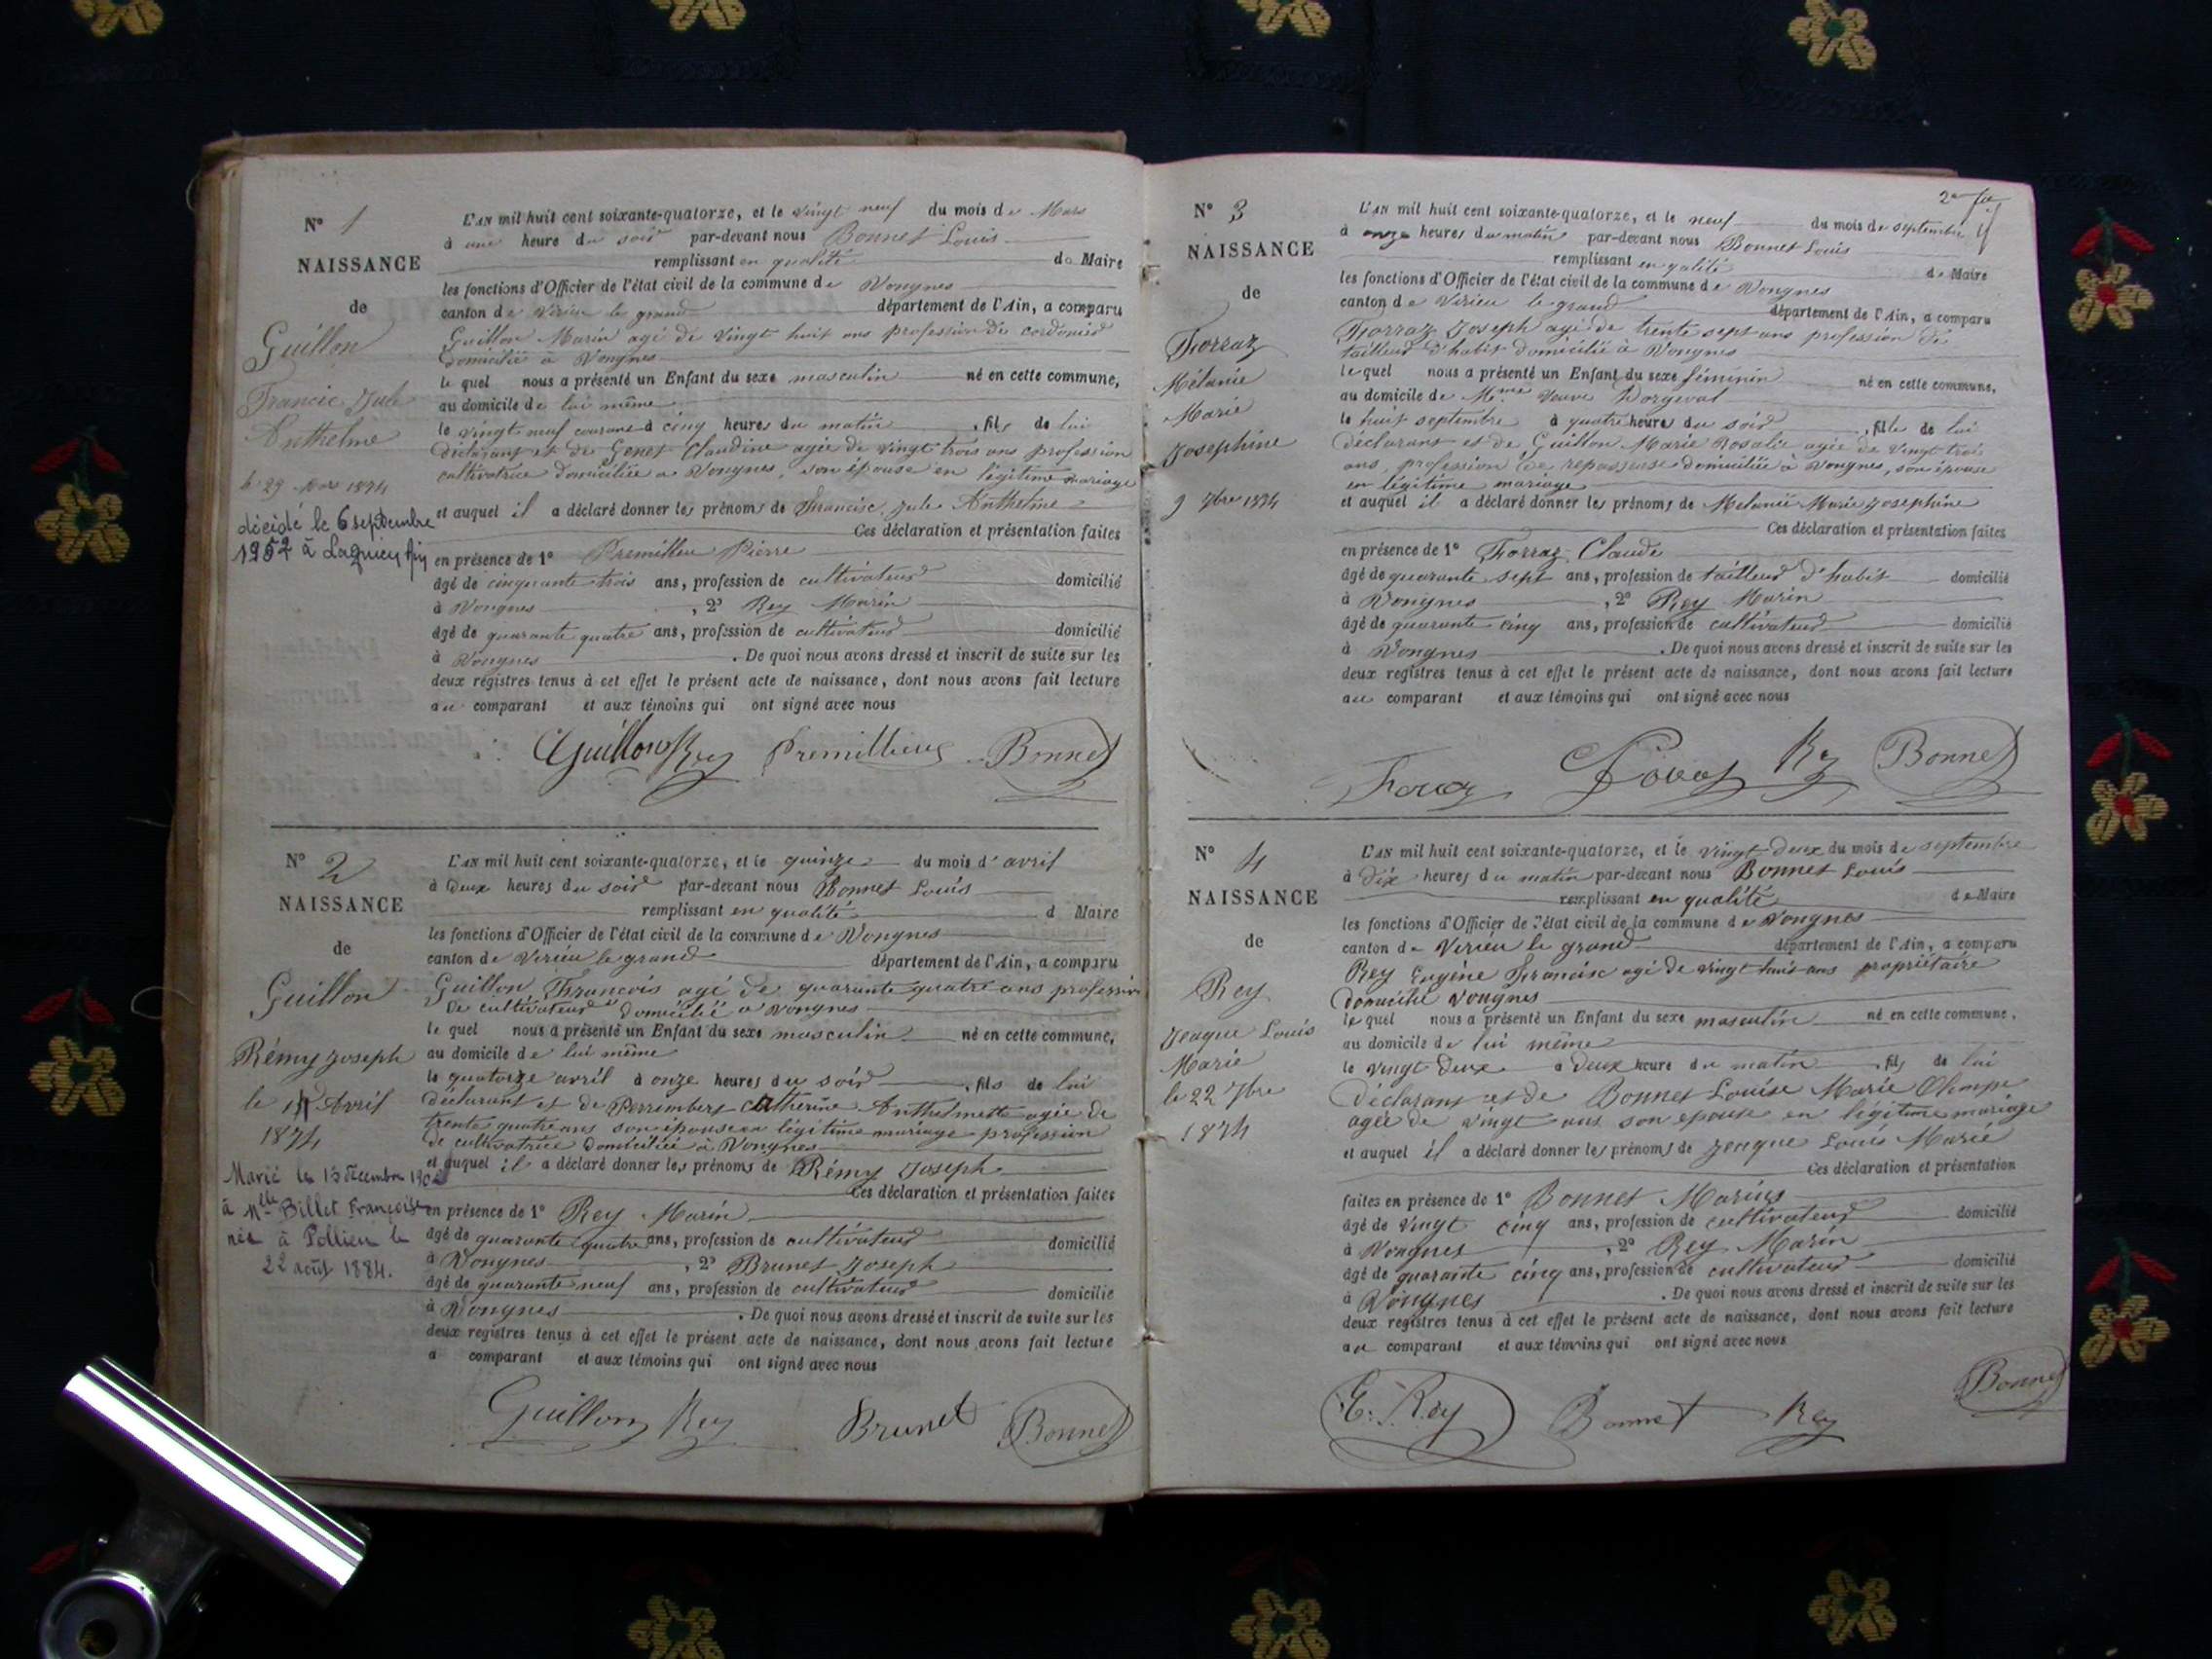 N° 1
NAISSANCE
de
Guillon
Francis Jule
Anthelme
le 29 Mars 1874
décédé le 6 septembre
1952 à Lagnieu Ain
L'AN mil huit cent soixante-quatorze, et le vingt neuf du mois de Mars
à une heure du soir par-devant nous Bonnet Louis
remplissant en qualité de Maire
les fonctions d'Officier de l'état civil de la commune de Vongnes
canton de Virieu le grand département de l'Ain, a comparu
Guillon Marin agé de vingt huit ans profession de cordonier
domicilié à Vongnes
le quel nous a présenté un Enfant du sexe masculin né en cette commune,
au domicile de lui même
le vingt neuf courant à cinq heures du matin, fils de lui
déclarant et de Genet Claudine agée de vingt trois ans profession
cultivatrice domiciliée a Vongnes, son épouse en légitime mariage
et auquel il a déclaré donner les prénoms de Francisc Jule Anthelme
Ces déclaration et présentation faites
en présence de 1° Premillieu Pierre
âgé de cinquante trois ans, profession de cultivateur domicilié
à Vongnes, 2° Rey Marin
âgé de quarante quatre ans, profession de cultivateur domicilié
à Vongnes. De quoi nous avons dressé et inscrit de suite sur les
deux registres tenus à cet effet le présent acte de naissance, dont nous avons fait lecture
au comparant et aux témoins qui ont signé avec nous
Guillon Rey Premillieux Bonnet
N° 2
NAISSANCE
de
Guillon
Rémy Joseph
le 14 Avril
1874
Marié le 13 décembre
à Mlle Billet Françoise
née à Pollieu le
22 août 1884.
L'AN mil huit cent soixante-quatorze, et le quinze du mois d'avril
à deux heures du soir par-devant nous Bonnet Louis
remplissant en qualité d Maire
les fonctions d'Officier de l'état civil de la commune de Vongnes
canton de Virieu le grand département de l'Ain, a comparu
Guillon François agé de quarante quatre ans profession
de cultivateur domicilié à Vongnes
le quel nous a présenté un Enfant du sexe masculin né en cette commune,
au domicile de lui même
le quatorze avril à onze heures du soir, fils de lui
déclarant et de Perrimbert Catherine Anthelmette agée de
trente quatre ans son épouse en légitime mariage profession
de cultivatrice domiciliée à Vongnes
et auquel il a déclaré donner les prénoms de Rémy Joseph
Ces déclaration et présentation faites
en présence de 1° Rey Marin
âgé de quarante quatre ans, profession de cultivateur domicilié
à Vongnes, 2° Brunet Joseph
âgé de quarante neuf ans, profession de cultivateur domicilié
à Vongnes. De quoi nous avons dressé et inscrit de suite sur les
deux registres tenus à cet effet le présent acte de naissance, dont nous avons fait lecture
a comparant et aux témoins qui ont signé avec nous
Guillon Rey Brunet Bonnet
N° 3
NAISSANCE
de
Forraz
Mélanie
Marie
Josephine
9 7bre 1874
L'AN mil huit cent soixante-quatorze, et le neuf du mois de septembre
à onze heures du matin par-devant nous Bonnet Louis
remplissant en qalité de Maire
les fonctions d'Officier de l'état civil de la commune de Vongnes
canton de Virieu le grand département de l'Ain, a comparu
Forraz Joseph agé de trente sept ans profession de
tailleur d'habit domicilié à Vongnes
le quel nous a présenté un Enfant du sexe féminin né en cette commune,
au domicile de Mme veuve Dorgeval
le huit septembre à quatre heures du soir, fille de lui
déclarant et de Guillon Marie Rosalie agée de vingt trois
ans, profession de repasseuse domiciliée à Vongnes, son épouse
en légitime mariage
et auquel il a déclaré donner les prénoms de Melanie Marie Josephine
Ces déclaration et présentation faites
en présence de 1° Forraz Claude
âgé de quarante sept ans, profession de tailleur d'habit domicilié
à Vongnes, 2° Rey Marin
âgé de quarante cinq ans, profession de cultivateur domicilié
à Vongnes. De quoi nous avons dressé et inscrit de suite sur les
deux registres tenus à cet effet le présent acte de naissance, dont nous avons fait lecture
au comparant et aux témoins qui ont signé avec nous
Rey Bonnet
N° 4
NAISSANCE
de
Rey
Jeaque Louis
Marie
le 22 7bre
1874
L'AN mil huit cent soixante-quatorze, et le vingt deux du mois de septembre
à dix heures du matin par-devant nous Bonnet Louis
remplissant en qualité de Maire
les fonctions d'Officier de l'état civil de la commune de Vongnes
canton de Virieu le grand département de l'Ain, a comparu
Rey Eugène Francisc agé de vingt huit ans propriétaire
domicilié Vongnes
le quel nous a présenté un Enfant du sexe masculin né en cette commune,
au domicile de lui même
le vingt deux à deux heure du matin, fils de lui
déclarant et de Bonnet Louise Marie Olimpe
agée de vingt ans son épouse en légitime mariage
et auquel il a déclaré donner les prénoms de Jeaque Louis Marie
Ces déclaration et présentation
faites en présence de 1° Bonnet Marius
âgé de vingt cinq ans, profession de cultivateur domicilié
à Vongnes, 2° Rey Marin
âgé de quarante cinq ans, profession de cultivateur domicilié
à Vongnes. De quoi nous avons dressé et inscrit de suite sur les
deux registres tenus à cet effet le présent acte de naissance, dont nous avons fait lecture
au comparant et aux témoins qui ont signé avec nous
E. Rey Bonnet Rey Bonnet